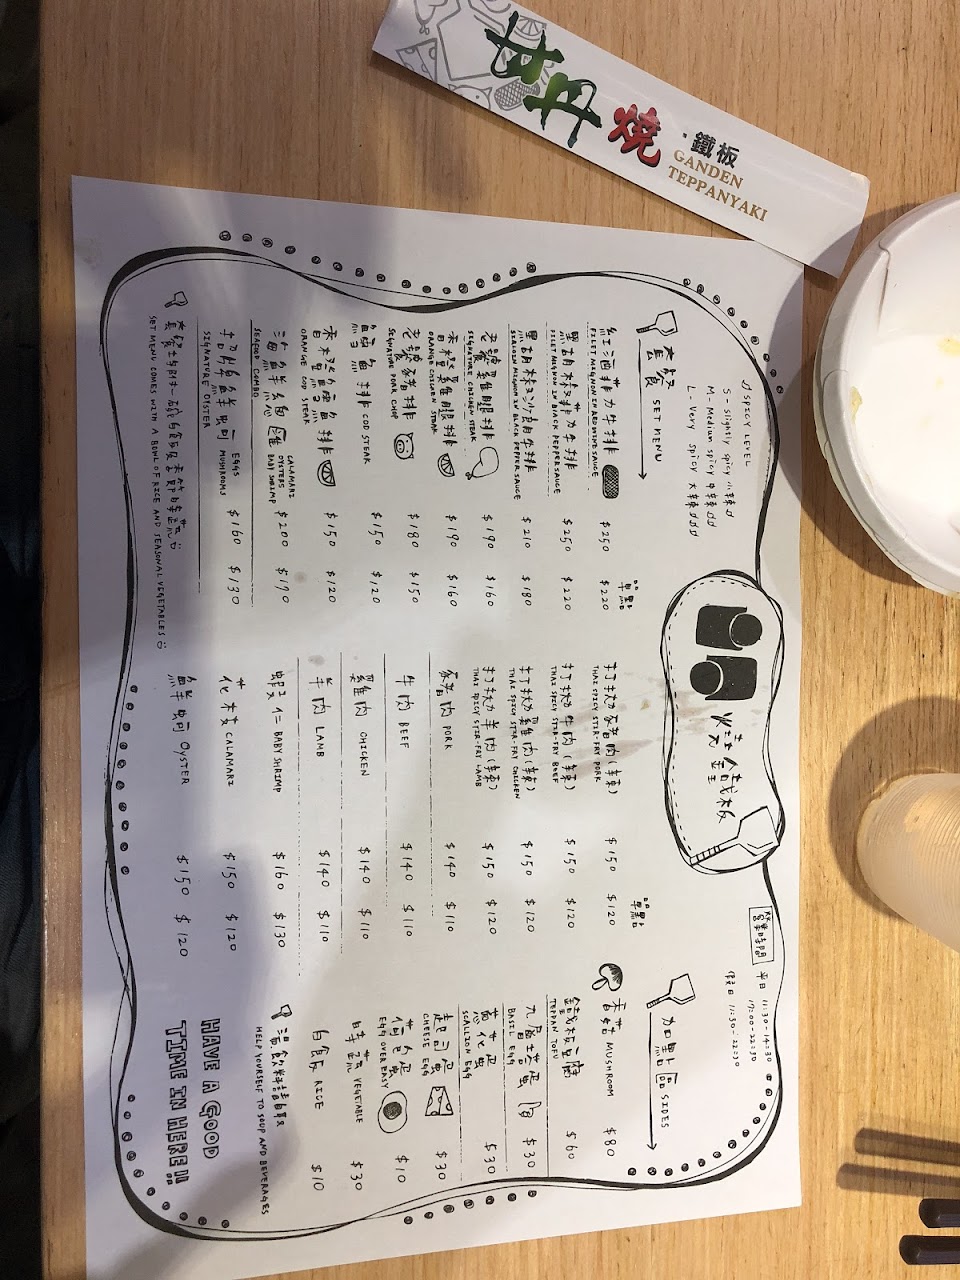 燒
·鐵板
GANDEN
TEPPANYAKI
SPICY LEVEL
S - slightly spicy 小辣
M - Medium spicy 中辣
L - Very spicy 大辣
鐵板
營業時間
平日 11:30-14:30
17:00-22:30
假日 11:30-22:30
套餐 SET MENU
單點
紅酒菲力牛排 $250 $220
FILET MIGNON IN RED WINE SAUCE
黑胡椒菲力牛排 $250 $220
FILET MIGNON IN BLACK PEPPER SAUCE
黑胡椒沙朗牛排 $210 $180
SIRLOIN MIGNON IN BLACK PEPPER SAUCE
老饕雞腿排 $190 $160
SIGNATURE CHICKEN STEAK
香橙雞腿排 $190 $160
ORANGE CHICKEN STEAK
老饕豬排 $180 $150
SIGNATURE PORK CHOP
鱈魚排 COD STEAK $150 $120
香橙鱈魚排 $150 $120
ORANGE COD STEAK
海鮮總匯 CALAMARI OYSTERS BABY SHRIMP $200 $170
SEAFOOD COMBO
招牌鮮蚵 EGGS MUSHROOMS $160 $130
SIGNATURE OYSTER
套餐皆附一碗白飯及季節時蔬
SET MENU COMES WITH A BOWL OF RICE AND SEASONAL VEGETABLES
單點
打拋豬肉(辣) $150 $120
THAI SPICY STIR-FRY PORK
打拋牛肉(辣) $150 $120
THAI SPICY STIR-FRY BEEF
打拋雞肉(辣) $150 $120
THAI SPICY STIR-FRY CHICKEN
打拋羊肉(辣) $150 $120
THAI SPICY STIR-FRY LAMB
豬肉 PORK $140 $110
牛肉 BEEF $140 $110
雞肉 CHICKEN $140 $110
羊肉 LAMB $140 $110
蝦仁 BABY SHRIMP $160 $130
花枝 CALAMARI $150 $120
鮮蚵 OYSTER $150 $120
加點區 SIDES
香菇 MUSHROOM $80
鐵板豆腐 $60
TEPPAN TOFU
九層塔蛋 $30
BASIL EGG
蔥花蛋 $30
SCALLION EGG
起司蛋 $30
CHEESE EGG
荷包蛋 $10
EGG OVER EASY
時蔬 VEGETABLE $30
白飯 RICE $10
湯飲料請自取
HELP YOURSELF TO SOUP AND BEVERAGES
HAVE A GOOD
TIME IN HERE!!